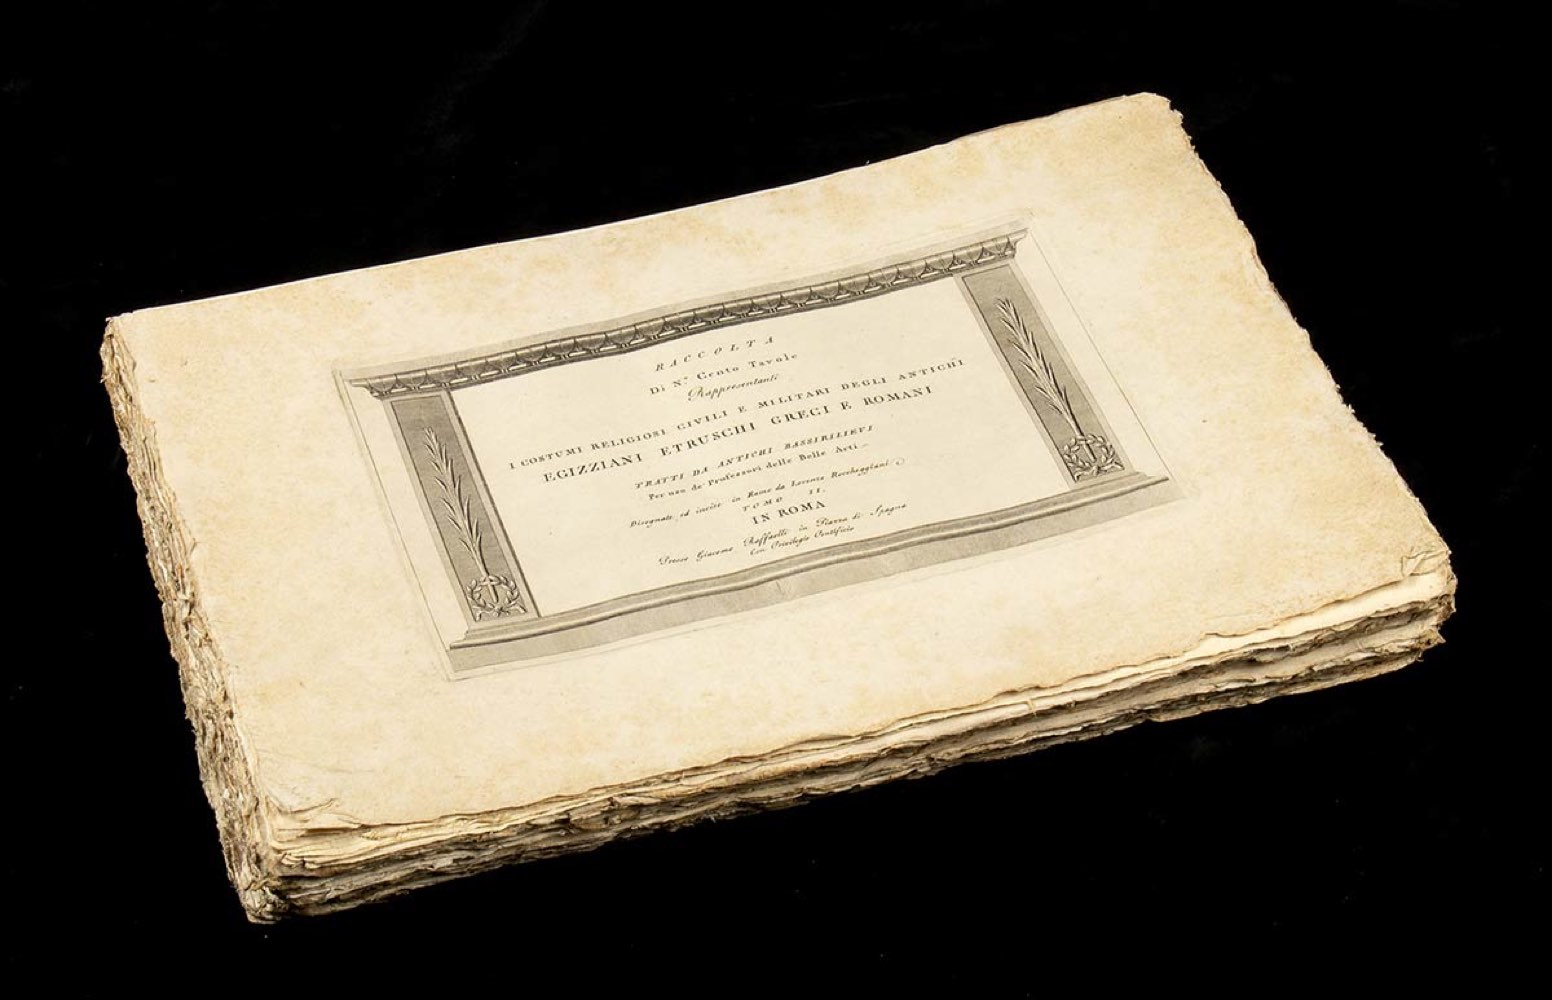 RACCOLTA
Di N.º Cento Tavole
Rappresentanti
I COSTUMI RELIGIOSI CIVILI E MILITARI DEGLI ANTICHI
EGIZZIANI ETRUSCHI GRECI E ROMANI
TRATTI DA ANTICHI BASSIRILIEVI
Per uso de' Professori delle Belle Arti
Disegnate, ed incise in Roma da Lorenzo Roccheggiani
TOMO II.
IN ROMA
Presso Giacomo Raffaelli in Piazza di Spagna
Con Privilegio Pontificio